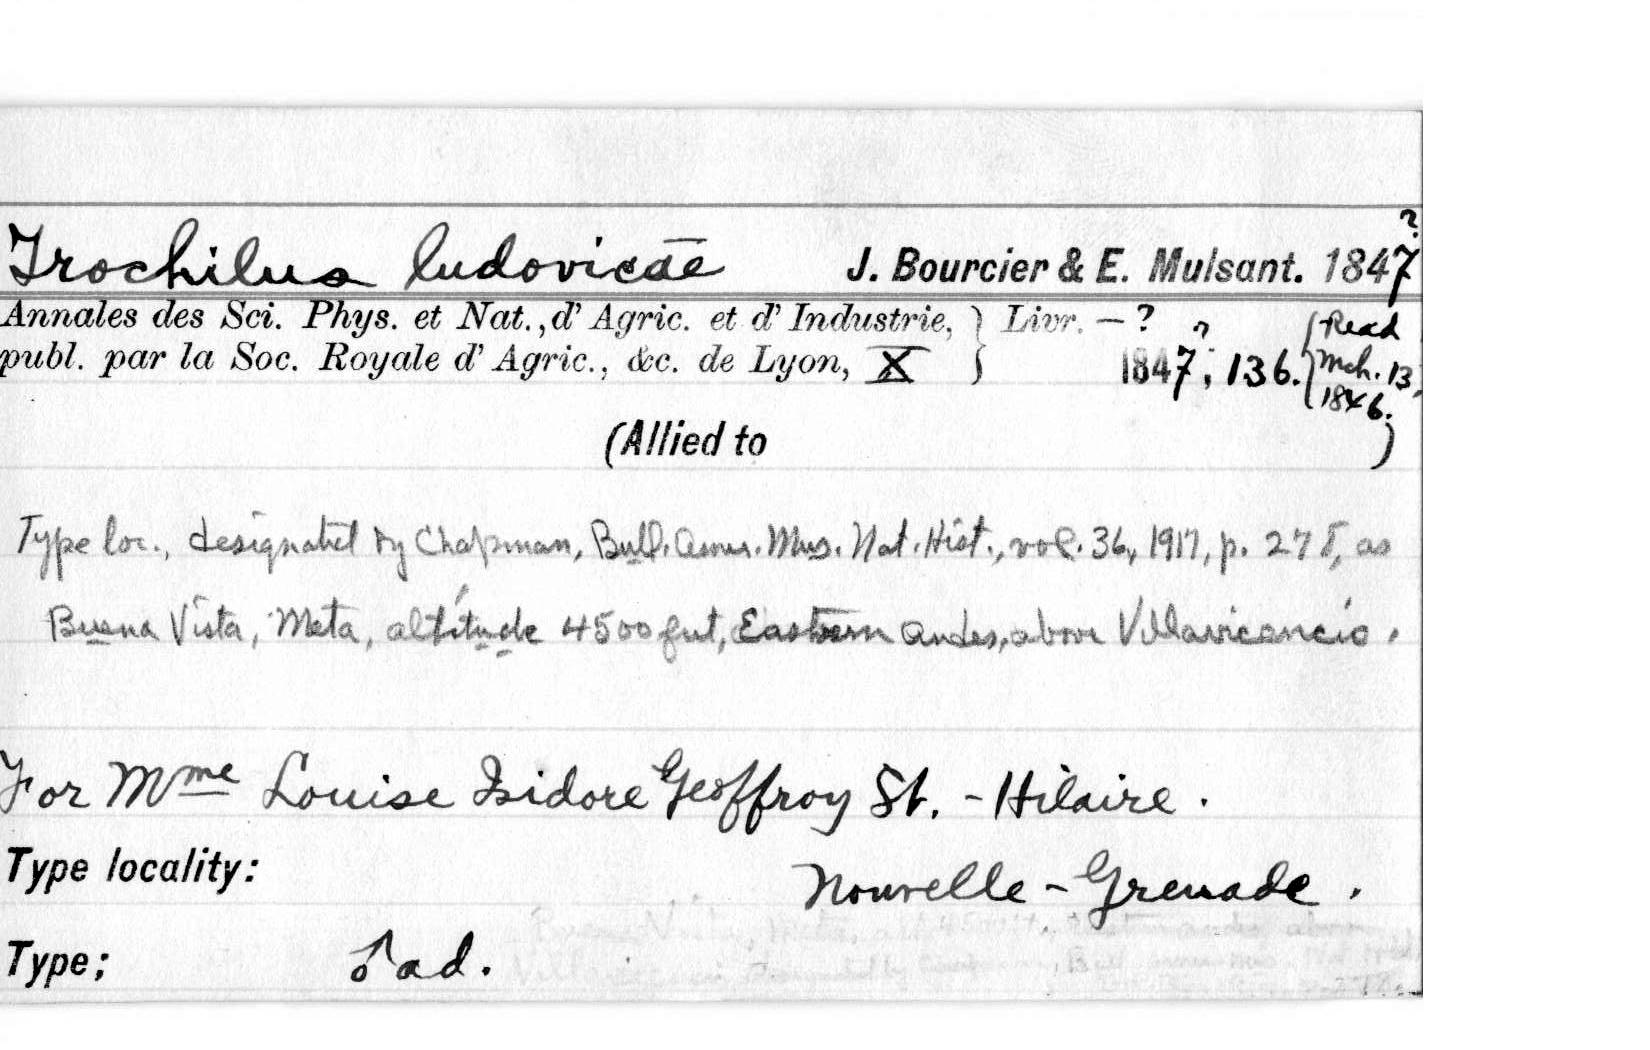 Trochilus ludovicae J. Bourcier & E. Mulsant. 1847?
Annales des Sci. Phys. et Nat., d' Agric. et d' Industrie, } Livr. — ? { Read
publ. par la Soc. Royale d' Agric., &c. de Lyon, X } 1847?; 136. { Mch. 13,
1846.
(Allied to )
Type loc., designated by Chapman, Bull. Amer. Mus. Nat. Hist., vol. 36, 1917, p. 278, as
Buena Vista, Meta, altitude 4500 feet, Eastern Andes, above Villavicencio.
For Mme Louise Isidore Geoffroy St. - Hilaire.
Type locality: Nouvelle - Grenade.
Type; ♂ ad.